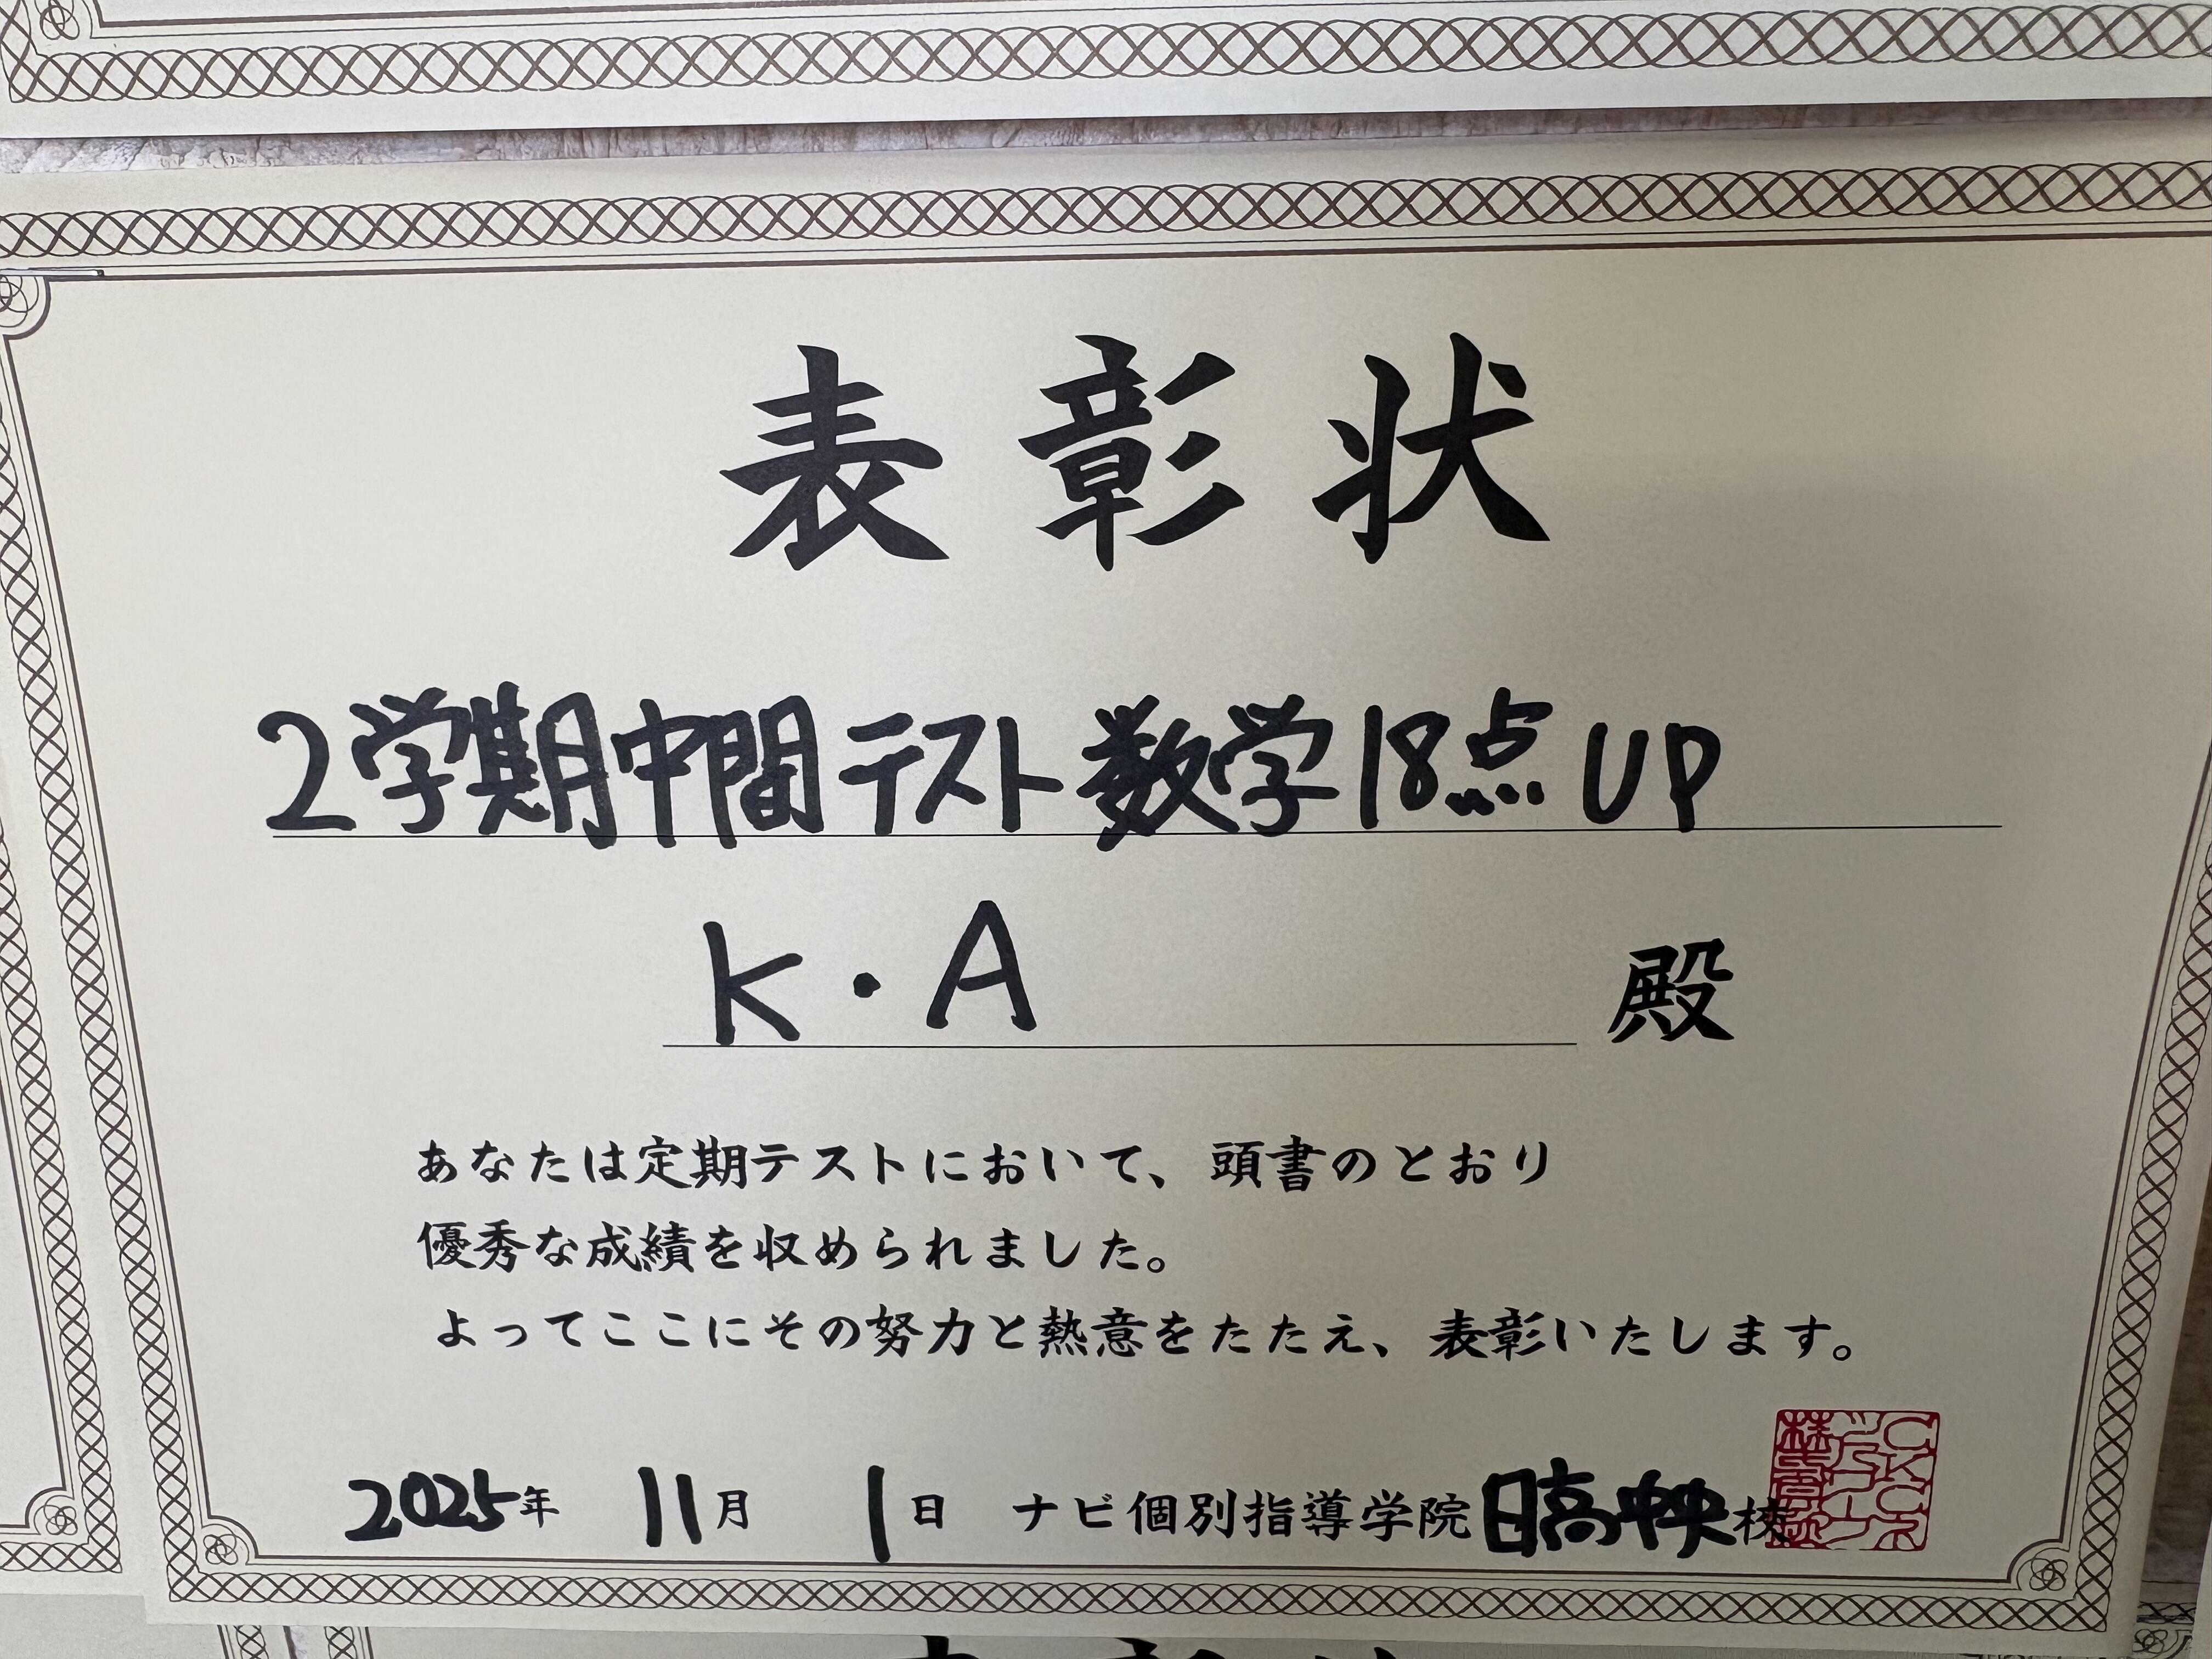 表彰状
2学期中間テスト数学18点UP
K・A 殿
あなたは定期テストにおいて、頭書のとおり
優秀な成績を収められました。
よってここにその努力と熱意をたたえ、表彰いたします。
2025年 11月 1日 ナビ個別指導学院日高中央校